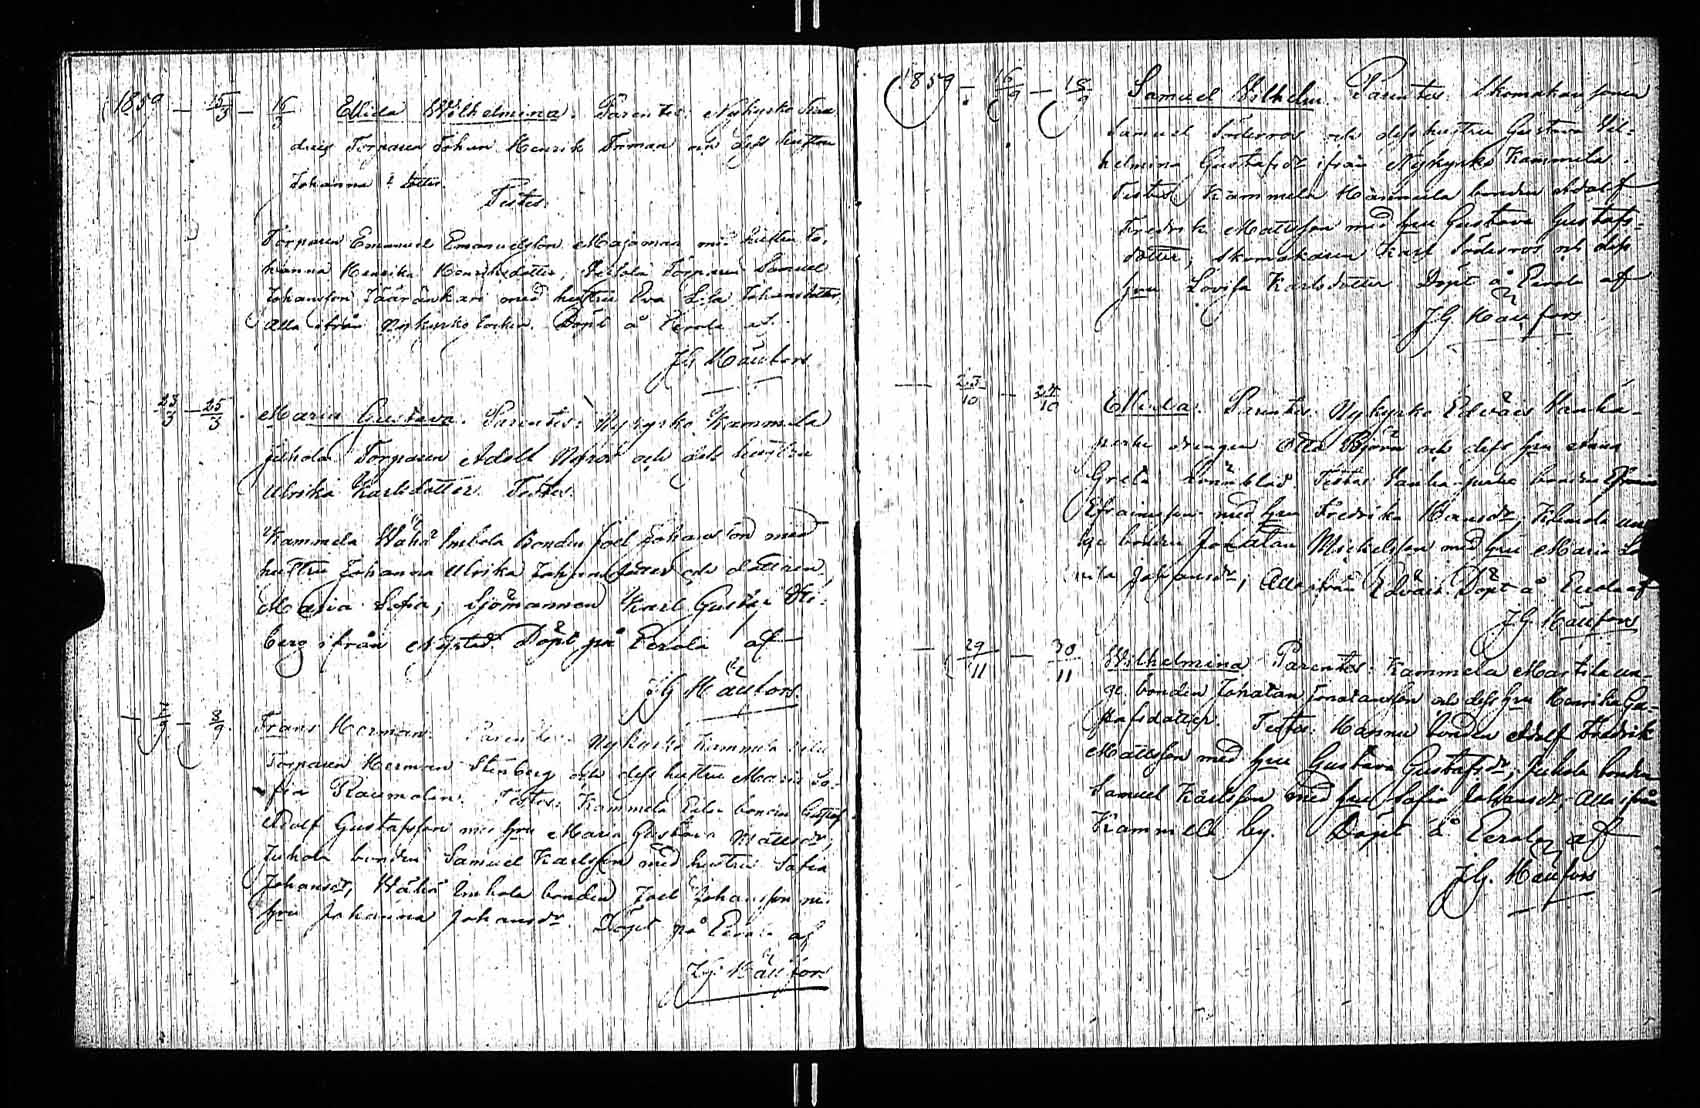 1859 — 15/3 — 16/3 Elida Wilhelmina. Parentes: Nykyrko
Torparen Johan Henrik och dess hustru
Johanna ? dotter.
Testes:
Torparen Emanuel Emanuelsson med hustru Jo-
hanna Henrika Henriksdotter, Torparen Samuel
Johansson med hustru Eva Lisa Johansdotter
Alla ifrån Nykyrko Socken. Döpt å Eerola af.
J G Käufors
23/3 — 25/3. Maria Gustava. Parentes: Nykyrko Kammela
Juhola Torparen Adolf och dess hustru
Ulrika Karlsdotter. Testes.
Kammela Wähä Imbola Bonden Joel Johansson med
hustru Johanna Ulrika Johansdotter och dottren
Maria Sofia; Sjömannen Karl Gustaf
berg ifrån Nystad. Döpt på Eerola af
J G Käufors.
— 8/9. Frans Herman. Parentes: Nykyrko Kammela
Torparen Herman Stenberg och dess hustru Maria So-
fia Testes: Kammela bonden Gustaf
Adolf Gustafsson med hru Maria Gustava
Juhola bonden Samuel Karlsson med hustru Sofia
Johansdr, Wähä Imhola bonden Joel Johansson med
hru Johanna Johansdr. Döpt på Eerola af
J.G. Käufors
1859 — 16/9 — 18/9 Samuel Wilhelm. Parentes: Skomakaren
Samuel Söderros och dess hustru Gustava Wil-
helmina Gustafsdr ifrån Nykyrko Kammela.
Testes: Kammela Hannula bonden Adolf
Fredrik Mattsson med hru Gustava Gustafs-
dotter, Skomakaren Karl Söderros och dess
hru Lovisa Karlsdotter. Döpt å Eerola af
J G Käufors
— 23/10 — 24/10 Elida. Parentes. Nykyrko Edväis Vanha-
perhe drengen Otto Björn och dess hru Anna
Greta Lönnblad. Testes. Vanha-perhe bonden
Efraimsson med hru Fredrika
bonden Jonatan Mickelsson med hru Maria
Johansdr; Alla ifrån Edväis. Döpt å Eerola af
J.G. Käufors
— 29/11 — 30/11 Wilhelmina Parentes: Kammela Martila un-
ge bonden Johatan Jonatansson och dess hru Henrika Gu-
stafsdotter. Testes: Hannu bonden Adolf Fredrik
Mattsson med hru Gustava Gustafsdr; Juhola bonden
Samuel Karlsson med hru Sofia Johansdr; Alla ifrån
Kammela by. Döpt å Eerola af
J.G. Käufors